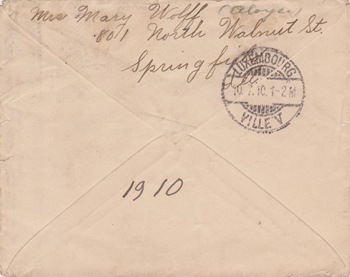 Mrs Mary Wolff (Aloyse)
801 North Walnut St.
Springfield
Ill.
LUXEMBOURG
10.7.10. 1-2M
VILLE V
1910